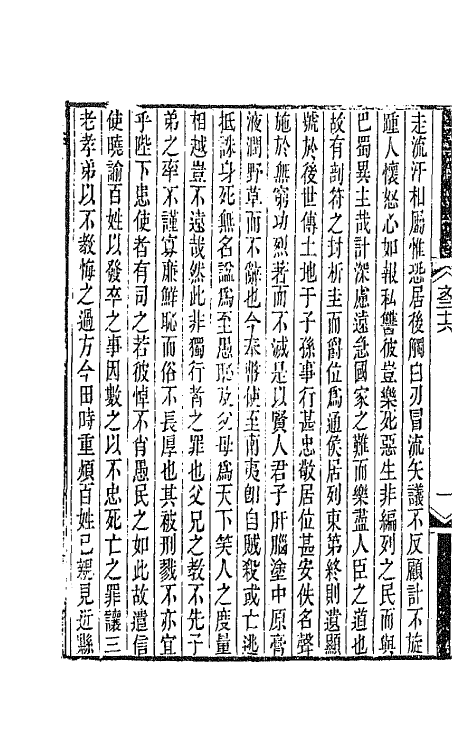 走流汗相屬惟恐居後觸白刃冒流矢議不反顧計不旋
踵人懷怒心如報私讐彼豈樂死惡生非編列之民而與
巴蜀異主哉計深慮遠急國家之難而樂盡人臣之道也
故有剖符之封析圭而爵位爲通侯居列東第終則遺顯
號於後世傳土地于子孫事行甚忠敬居位甚安佚名聲
施於無窮功烈著而不滅是以賢人君子肝腦塗中原膏
液潤野草而不辭也今奉幣使至南夷卽自賊殺或亡逃
抵誅身死無名諡爲至愚恥及父母爲天下笑人之度量
相越豈不遠哉然此非獨行者之罪也父兄之教不先子
弟之率不謹寡廉鮮恥而俗不長厚也其被刑戮不亦宜
乎陛下患使者有司之若彼悼不肖愚民之如此故遣信
使曉諭百姓以發卒之事因數之以不忠死亡之罪讓三
老孝弟以不教悔之過方今田時重煩百姓已親見近縣
文三六
一